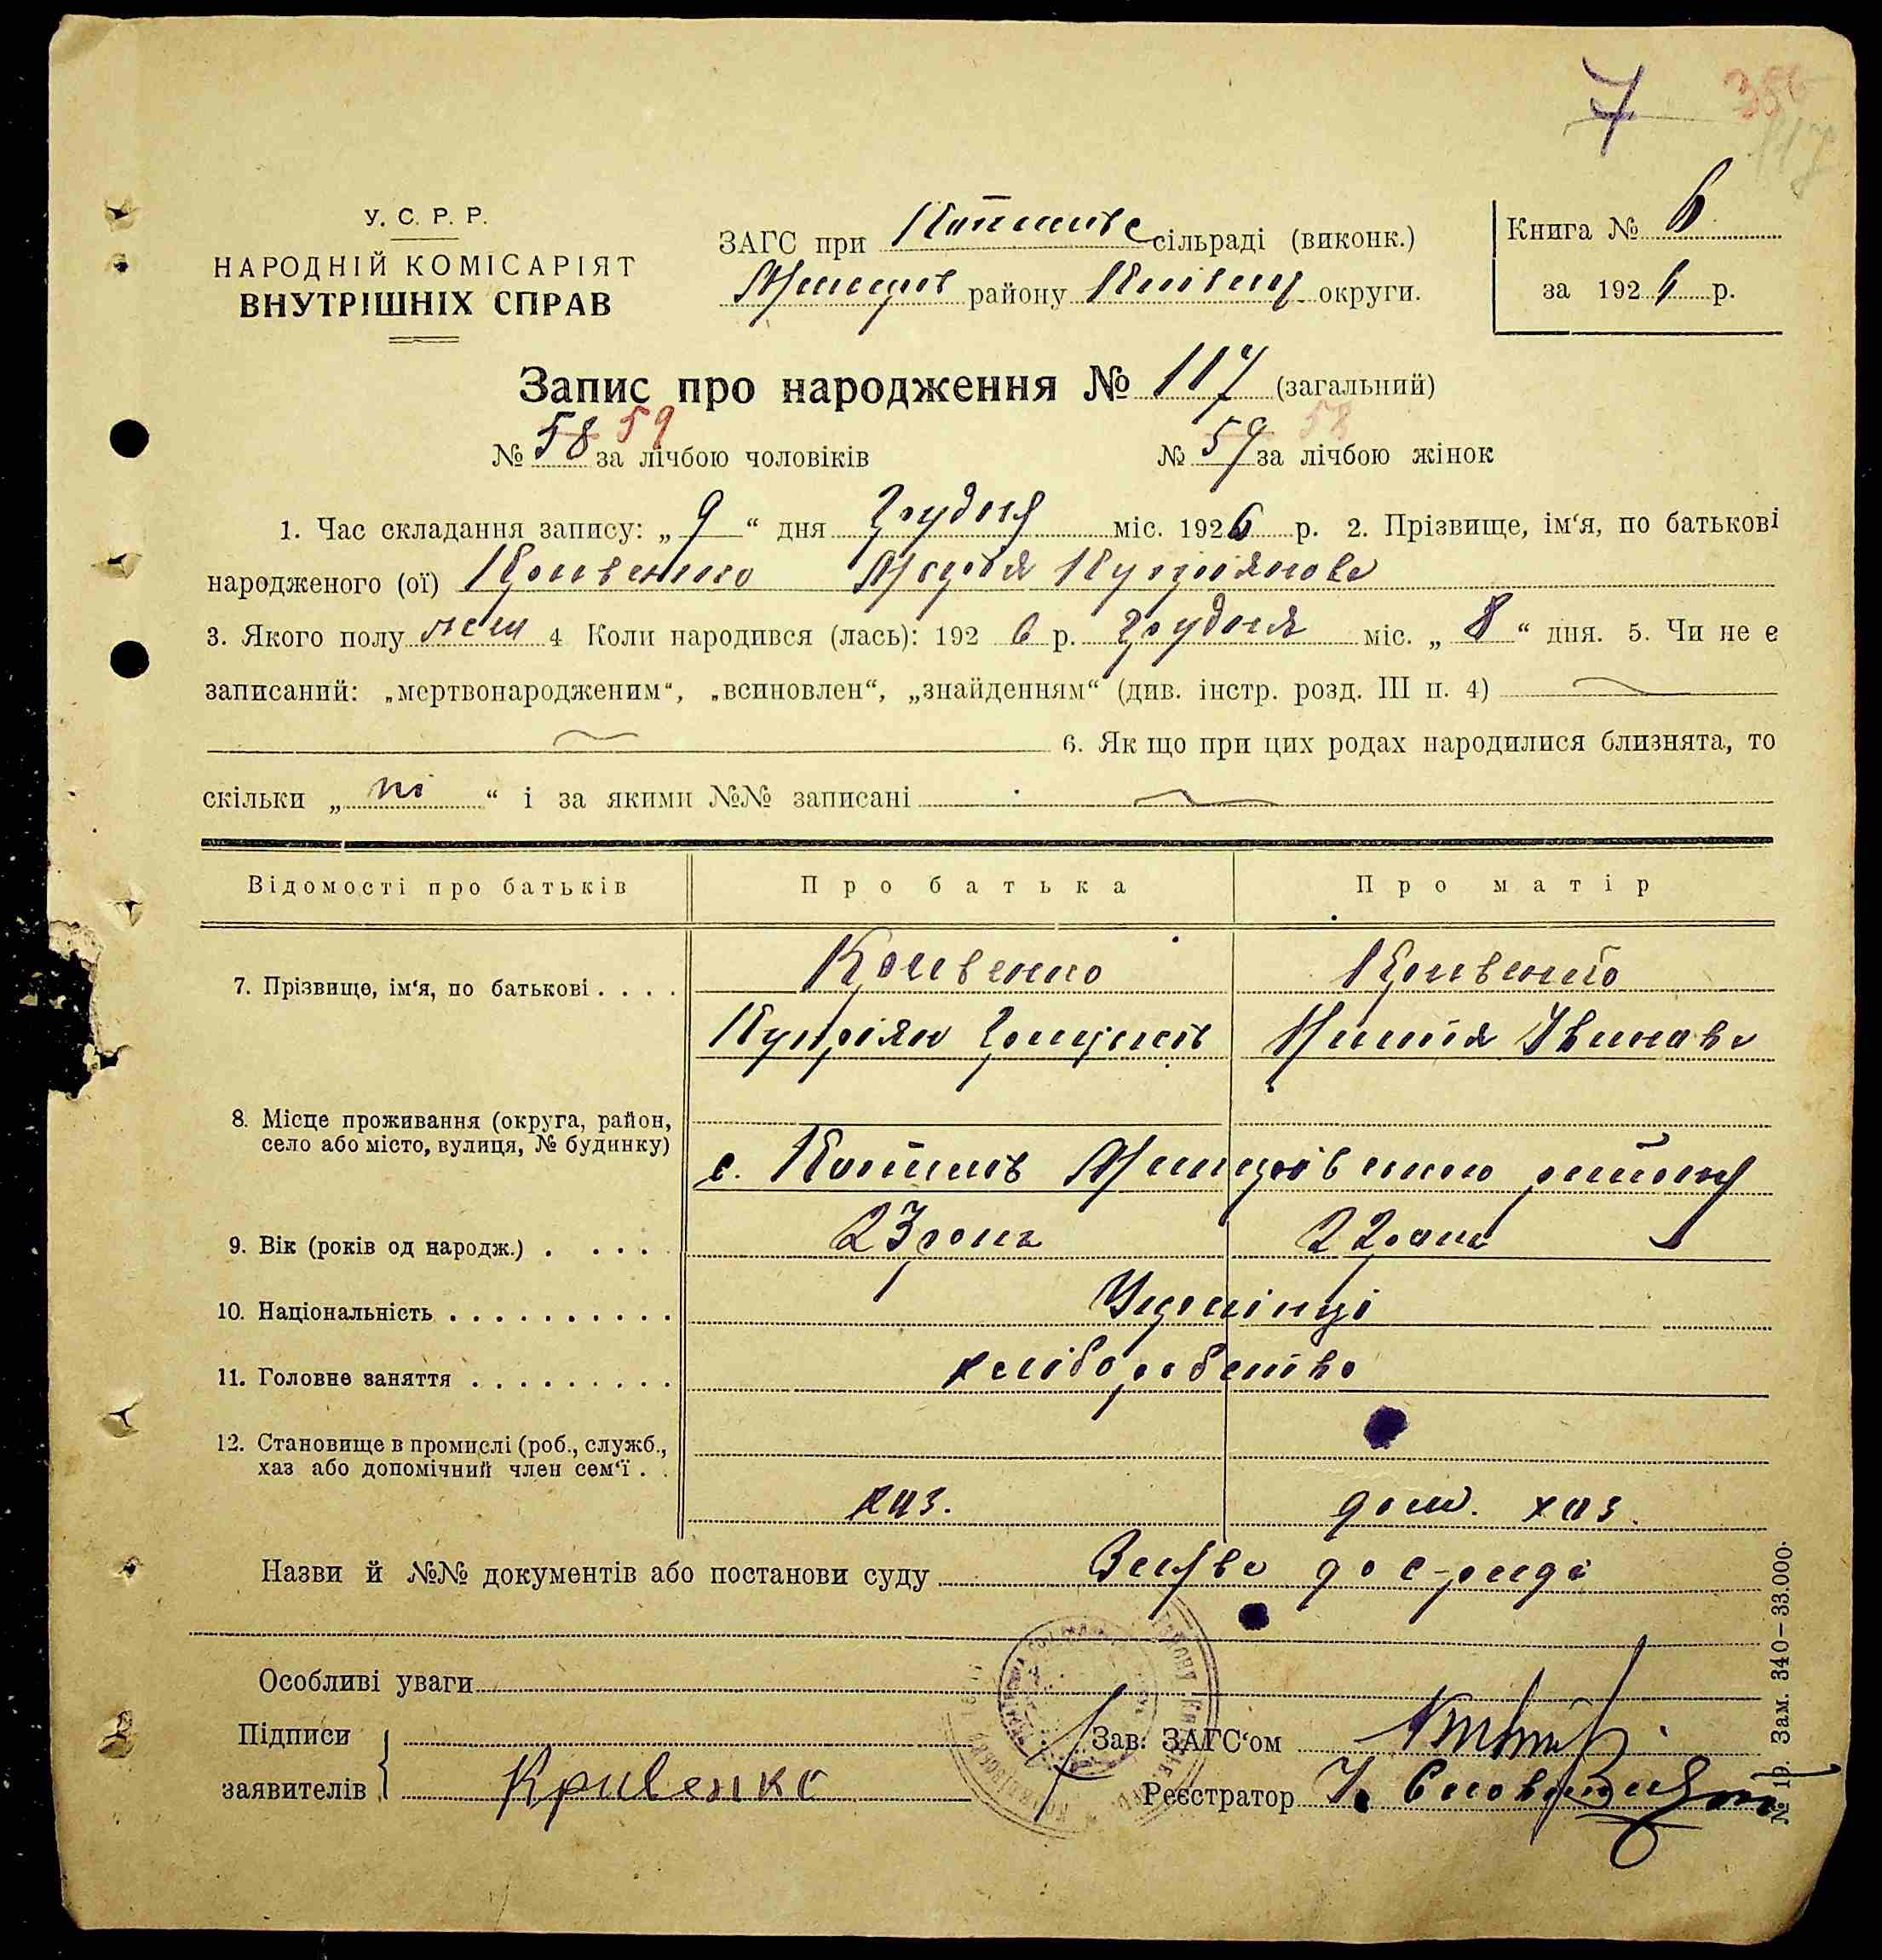 7
356
117
У. С. Р. Р.
НАРОДНІЙ КОМІСАРІЯТ
ВНУТРІШНІХ СПРАВ
ЗАГС при Копилівс сільраді (виконк.)
Макарів району Київськ округи.
Книга № 6
за 1926 р.
Запис про народження № 117 (загальний)
№ 58 59 за лічбою чоловіків № 59 58 за лічбою жінок
1. Час складання запису: „ 9 “ дня Грудня міс. 1926 р. 2. Прізвище, ім‘я, по батькові
народженого (ої) Кривенко Купріянова
3. Якого полу 4 Коли народився (лась): 1926 р. Грудня міс. „ 8 “ дня. 5. Чи не є
записаний: „мертвонародженим“, „всиновлен“, „знайденням“ (див. інстр. розд. III п. 4)
6. Як що при цих родах народилися близнята, то
скільки „ ні “ і за якими №№ записані
Відомості про батьків Про батька Про матір
7. Прізвище, ім‘я, по батькові . . . . Кривенко Кривенко
Купріян Іванова
8. Місце проживання (округа, район,
село або місто, вулиця, № будинку)
с. Копилів Макарівського району
9. Вік (років од народж.) . . . . 23 роки 22 роки
10. Національність . . . . . . . . . . Українці
11. Головне заняття . . . . . . . . . хліборобство
12. Становище в промислі (роб., служб.,
хаз або допомічний член сем‘ї . .
хаз. дом. хаз.
Назви й №№ документів або постанови суду Заява до с-ради
Особливі уваги
Підписи
заявителів
Кривенко
Зав. ЗАГС‘ом
Реєстратор
№ 19. Зам. 340—33.000.